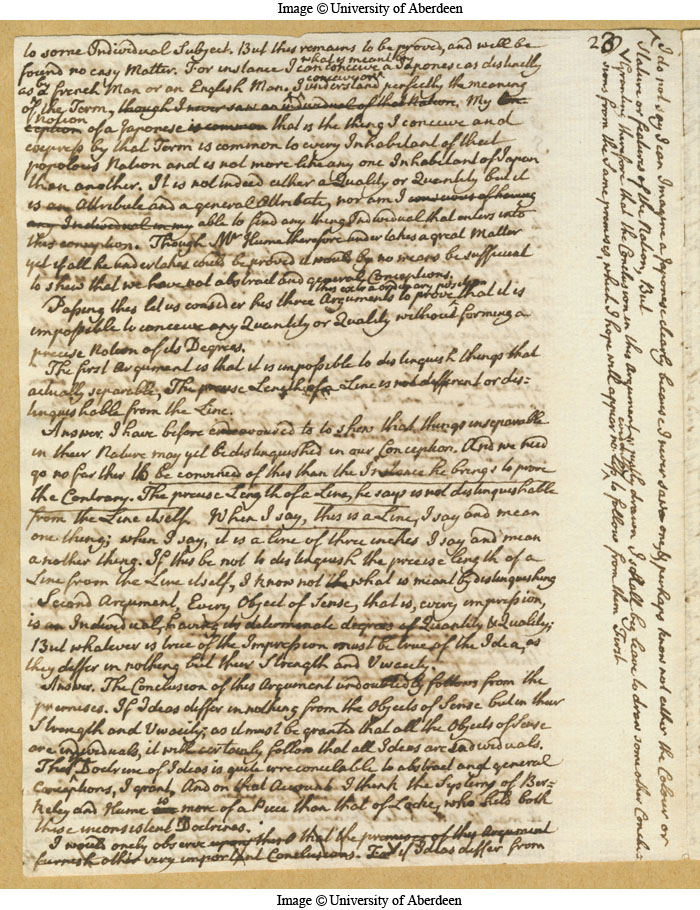 Image © University of Aberdeen
28
to some Individual Subject. But this remains to be proved, and will be
found no easy Matter. For instance I can conceive a Japonese as distinctly
what is meant by
as a French Man or an English Man. I understand perfectly the meaning
conceive or
of the Term, though I never saw an individual of that Nation. My Con-
notion
ception of a Japonese is common that is the thing I conceive and
express by that Term is common to every Inhabitant of that
populous Nation and is not more like any one Inhabitant of Japan
than another. It is not indeed either a Quality or Quantity but it
is an Attribute and a general Attribute, nor am I conscious of having
any Individual in my able to find any thing Individual that enters into
this conception. Though Mr Hume therefore undertakes a great Matter
yet if all he undertakes could be proved it would by no means be sufficient
to shew that we have not abstract and general Conceptions.
Passing this let us consider his three Arguments to prove that it is
this extraordinary position
impossible to conceive any Quantity or Quality without forming a
precise Notion of its Degrees.
The first Argument is that it is impossible to distinguish things that
actually separable, The precise Length of a Line is not different or dis-
tinguishable from the Line.
Answer. I have before endeavoured to to shew that things inseparable
in their Nature may yet be distinguished in our Conception. And we need
go no farther to be convinced of this than the Instance he brings to prove
the Contrary. The precise Length of a Line, he says is not distinguishable
from the Line itself. When I say, this is a Line, I say and mean
one thing; when I say, it is a line of three inches I say and mean
another thing. If this be not to distinguish the precise length of a
Line from the Line itself, I know not what is meant by distinguishing
Second Argument, Every Object of Sense, that is, every impression,
is an Individual, having its determinate degrees of Quantity & Quality;
But whatever is true of the Impression must be true of the Idea, as
they differ in nothing but their Strength and Vivacity.
Answer. The Conclusion of this Argument undoubtedly follows from the
premises. If Ideas differ in nothing from the Objects of Sense but in their
Strength and Vivacity; as it must be granted that all the Objects of Sense
are individuals, it will certainly follow that all Ideas are Individuals.
This Doctrine of Ideas is quite irreconcilable to abstract and general
Conceptions, I grant, And on that Account I think the Systems of Ber-
keley and Hume is more of a Piece than that of Locke, who held both
these inconsistent Doctrines.
I would onely observe upon this that the premises of this Argument
furnish other very important Conclusions. For if Ideas differ from
I do not say I can Imagine a Japonese clearly because I never saw one & perhaps know not either the Colour or
Stature or features of the Nation, But
Granting therefore that the Conclusion in this Argument is justly drawn I shall beg leave to draw some other Conclu-
sions from the same premises, which I hope will appear no less evidently to follow from them First
Image © University of Aberdeen